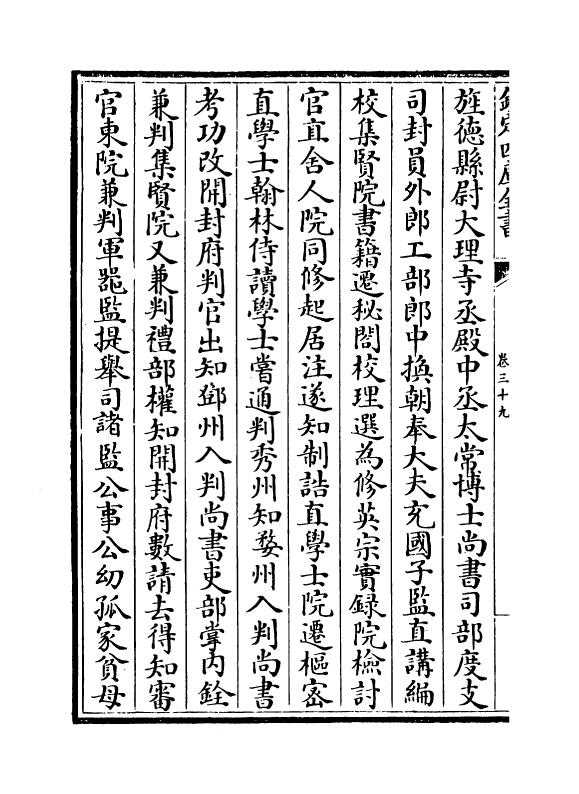 欽定四庫全書
卷三十九
旌德縣尉大理寺丞殿中丞太常博士尚書司部度支
司封員外郎工部郎中換朝奉大夫充國子監直講編
校集賢院書籍遷秘閣校理選為修英宗實錄院檢討
官直舍人院同修起居注遂知制誥直學士院遷樞宻
直學士翰林侍讀學士嘗通判秀州知婺州入判尚書
考功改開封府判官出知鄧州入判尚書吏部掌内銓
兼判集賢院又兼判禮部權知開封府數請去得知審
官東院兼判軍噐監提舉司諸監公事公幼孤家貧母